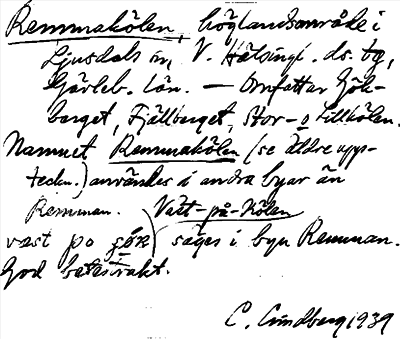 Remmakölen, höglandsområde i
Ljusdals sn, V. Hälsingl. ds. tg,
Gävleb. län. — Omfattar Gök-
berget, Fjällberget, Stor- o Lillkölen.
Namnet Remmakölen (se äldre upp-
teckn.) användes i andra byar än
Remman. Väst-på-Kölen
væst po çøn) säges i byn Remman.
God betestrakt.
C. Lindberg 1939